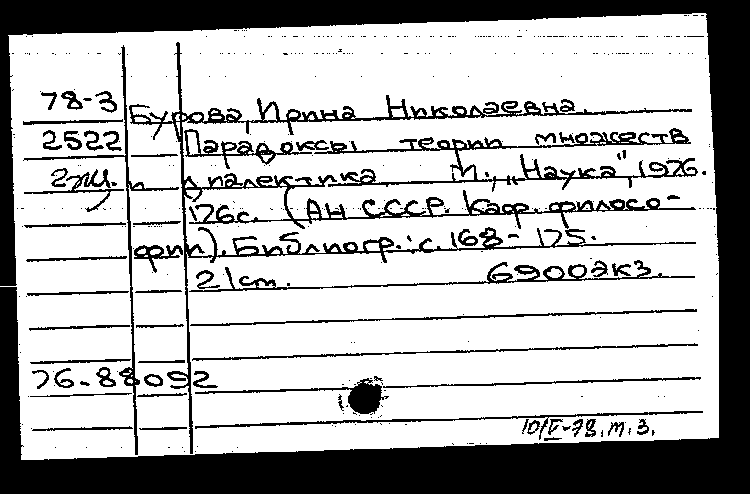 78-3 Бурова, Ирина Николаевна.
2522 Парадоксы теории множеств
2 эц. и диалектика М., „Наука", 1976.
176с. (АН СССР. Каф. филосо-
фии). Библиогр.: с. 168-175.
21 cm. 6900экз.
76-88092
10/V-78. т. 3.